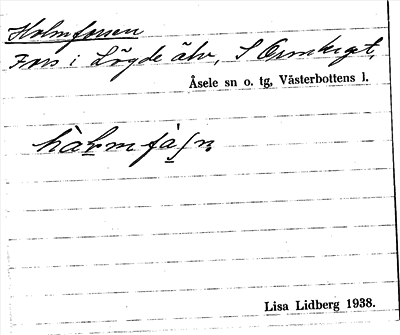 Holmforsen
Fors i Lögde älv, S Ormberget,
Åsele sn o. tg, Västerbottens l.
hàlmfàʃn
Lisa Lidberg 1938.